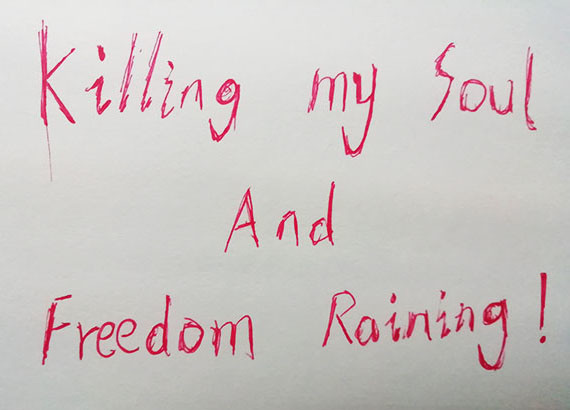 Killing my Soul
And
Freedom Raining!